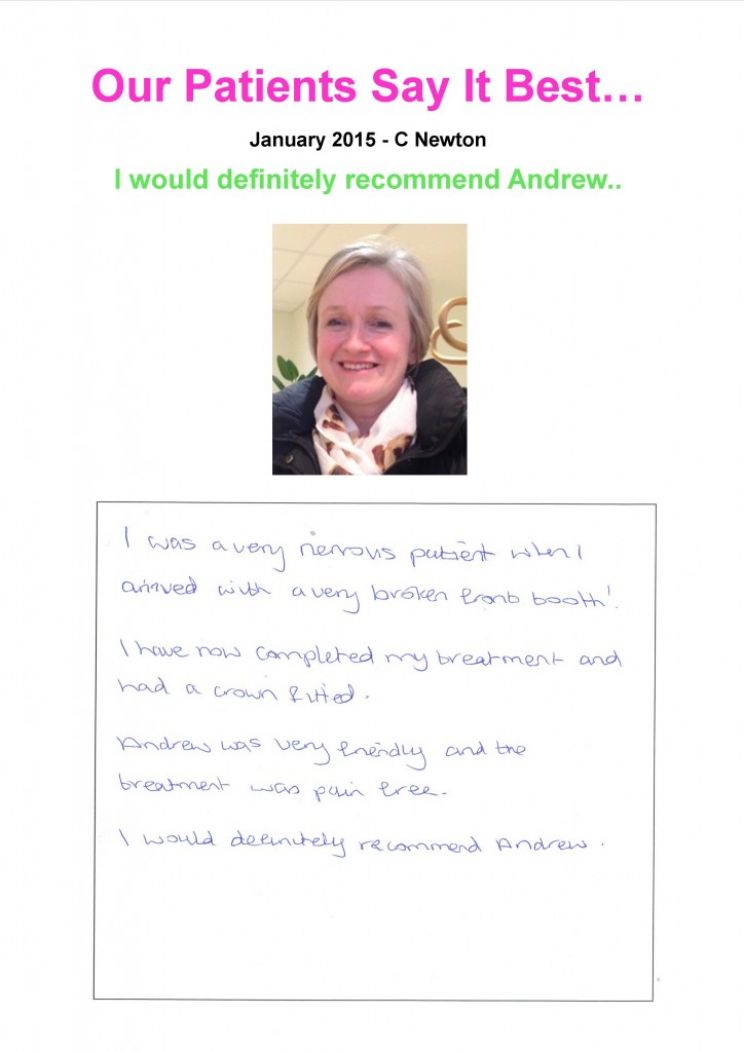 Our Patients Say It Best...
January 2015 - C Newton
I would definitely recommend Andrew..
I was a very nervous patient when I
arrived with a very broken front tooth!
I have now completed my treatment and
had a crown fitted.
Andrew was very friendly and the
treatment was pain free.
I would definitely recommend Andrew.